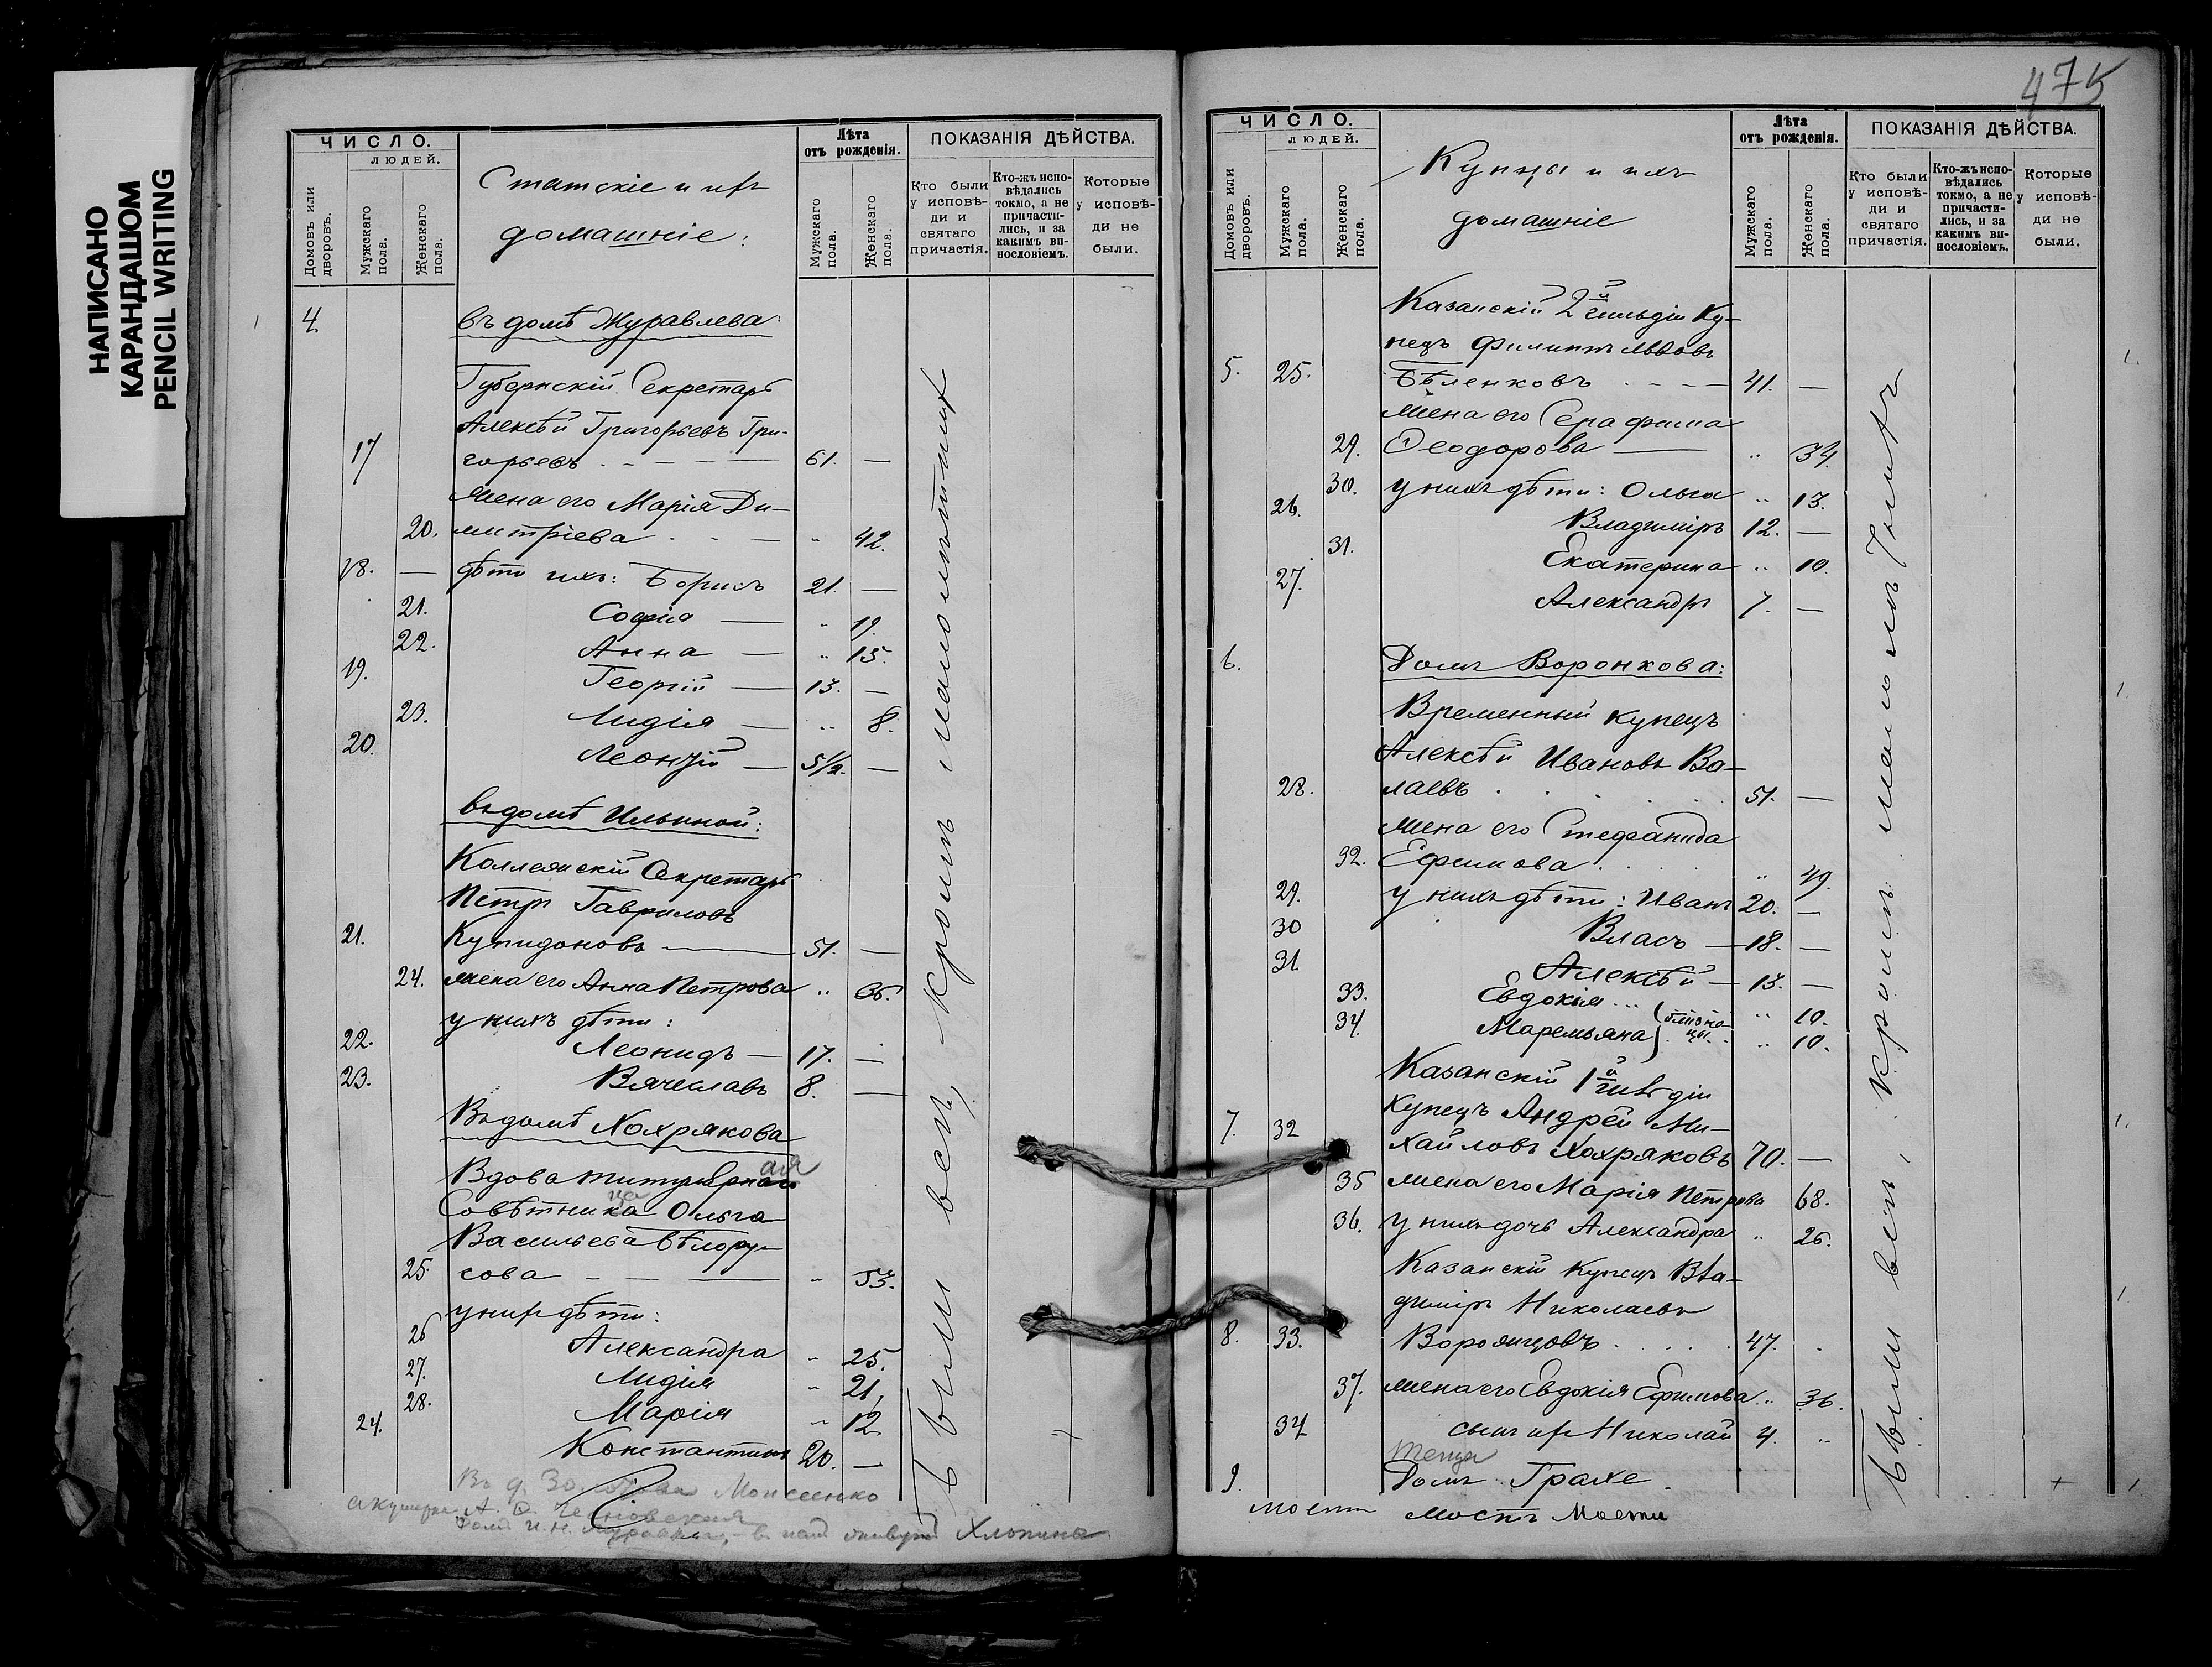 НАПИСАНО
КАРАНДАШОМ
PENCIL WRITING
ЧИСЛО.
ЛЮДЕЙ.
Домовъ или дворовъ.
Мужскаго пола.
Женскаго пола.
Статскіе и ихъ
домашніе:
Лѣта
отъ рожденія.
Мужскаго пола.
Женскаго пола.
ПОКАЗАНІЯ ДѢЙСТВА.
Кто были
у исповѣ-
ди и
святаго
причастія.
Кто-жъ испо-
вѣдались
токмо, а не
причасти-
лись, и за
какимъ ви-
нословіемъ.
Которые
у исповѣ-
ди не
были.
4. въ домѣ Журавлева:
Губернскій Секретарь
Алексѣй Григорьевъ Гри-
17 горьевъ 61. —
Жена его Марія Ди-
20. митріева " 42.
18. — дѣти ихъ: Борисъ 21. —
21. Софія — " 19.
22. Анна — " 15.
19. Георгій — 13. —
23. Лидія — " 8.
20. Леонтій — 5 1/2. —
въ домѣ Ильиной:
Коллежскій Секретарь
Петръ Гавриловъ
21. Купидоновъ — 51. —
24. жена его Анна Петрова " 36.
у нихъ дѣти:
22. Леонидъ — 17. —
23. Вячеславъ 8. —
Въ домѣ Хохрякова
Вдова титулярная
Совѣтника Ольга
Васильева Бѣлору-
25. сова — " 53.
у нихъ дѣти:
26 Александра " 25.
27. Лидія " 21,
28. Марія " 12
24. Константинъ 20. —
Были всѣ, кромѣ малолѣтнихъ
Въ д. Зо. Моисеенко
акушерка А.
Хлопины
475
ЧИСЛО.
ЛЮДЕЙ.
Домовъ или дворовъ.
Мужскаго пола.
Женскаго пола.
Купцы и ихъ
домашніе
Лѣта
отъ рожденія.
Мужскаго пола.
Женскаго пола.
ПОКАЗАНІЯ ДѢЙСТВА.
Кто были
у исповѣ-
ди и
святаго
причастія.
Кто-жъ испо-
вѣдались
токмо, а не
причасти-
лись, и за
какимъ ви-
нословіемъ.
Которые
у исповѣ-
ди не
были.
Казанскій 2й гильдіи Ку-
пецъ Филиппъ Львовъ
5. 25. Бѣленковъ 41. —
Жена его Серафима
29. Ѳеодорова — " 34.
30. у нихъ дѣти: Ольга " 13.
26. Владиміръ 12. —
31. Екатерина " 10.
27. Александръ 7. —
6. Домъ Воронкова:
Временный купецъ
Алексѣй Ивановъ Ва-
28. лаевъ 51. —
Жена его Стефанида
32. Ефимова " 49.
29. у нихъ дѣти: Иванъ 20. —
30 Власъ — 18. —
31 Алексѣй — 13. —
33. Евдокія " 10.
34. Маремьяна (близне-цы.) " 10.
Казанскій 1й гильдіи
купецъ Андрей Ми-
7. 32 хайловъ Хохряковъ 70. —
35 жена его Марія Петрова 68.
36. у нихъ дочь Александра " 26.
Казанскій Купецъ Вла-
диміръ Николаевъ
8. 33. Воронцовъ 47.
37. жена его Евдокія Ефимова " 36.
34 сынъ ихъ Николай 4. "
Теща
9. Домъ Грахе.
Мости Мостъ Мости
Были всѣ, кромѣ малолѣтнихъ